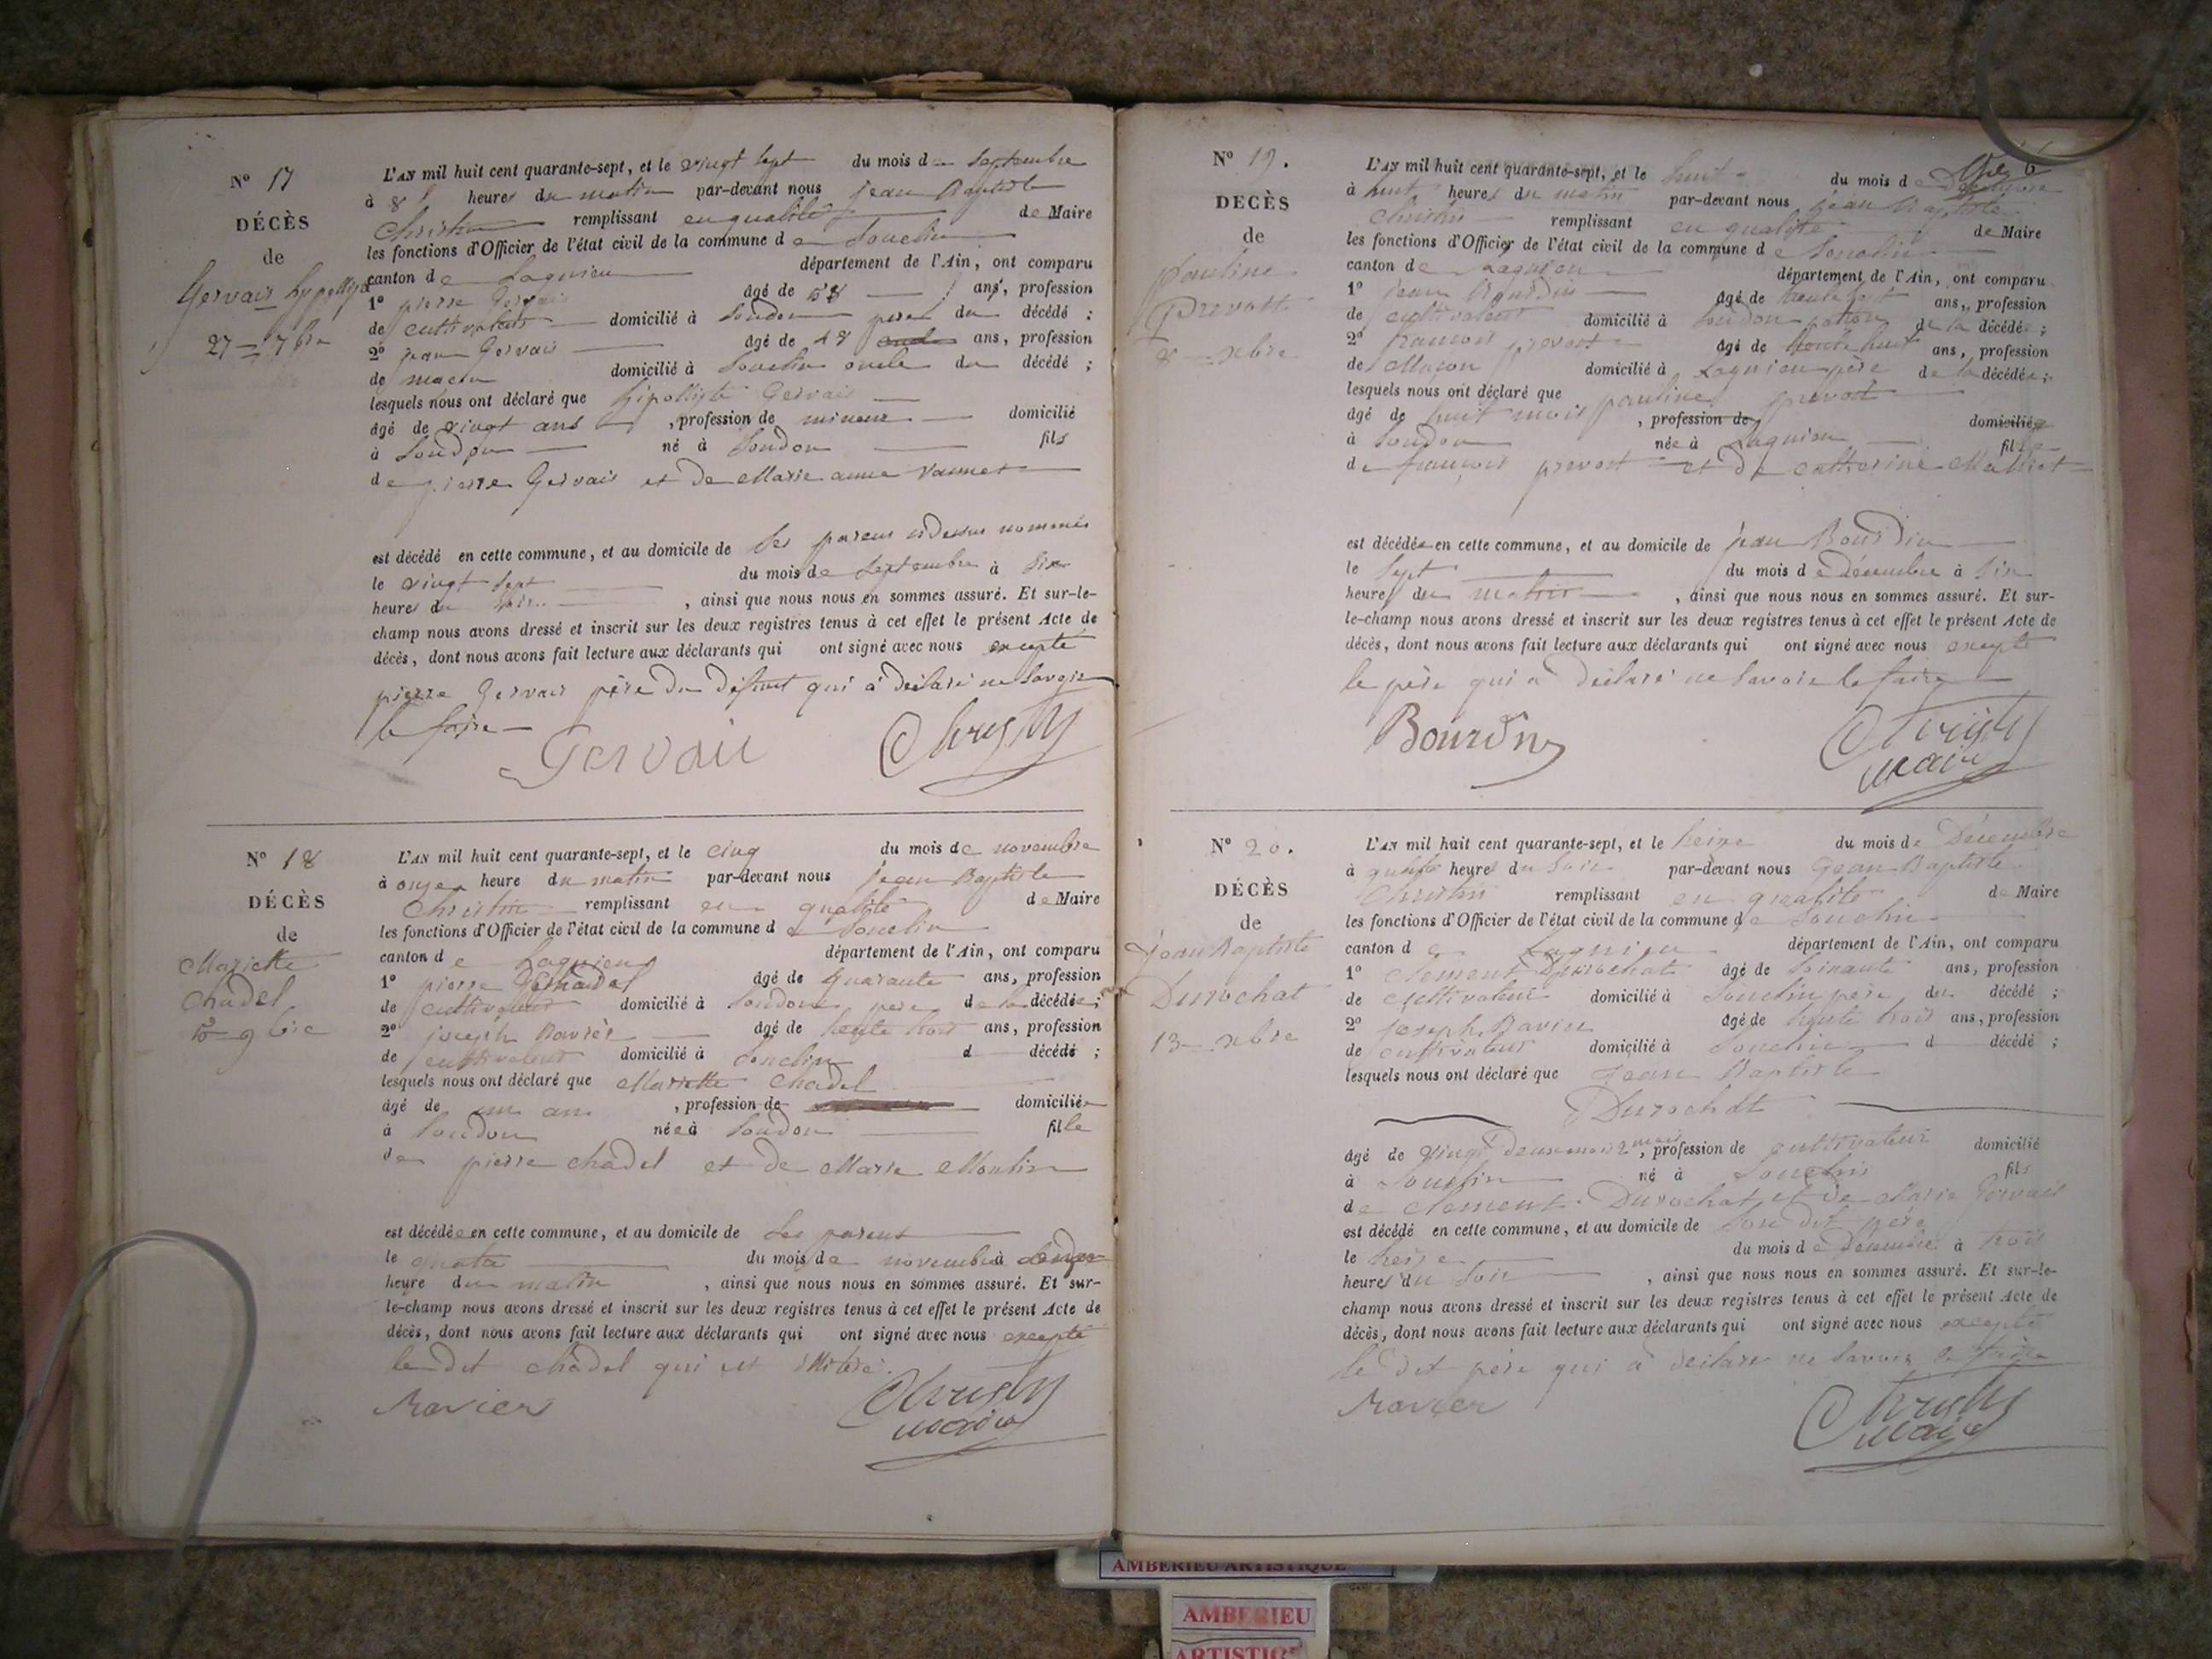 N° 17
DÉCÈS
de
Gervais hypollite
27 7bre
L'AN mil huit cent quarante-sept, et le vingt sept du mois de septembre
à 8 heures du matin par-devant nous jean Baptiste
Christin remplissant en qualité de Maire
les fonctions d'Officier de l'état civil de la commune de Souclin
canton de Lagnieu département de l'Ain, ont comparu
1° pierre Gervais âgé de 58 ans, profession
de cultivateur domicilié à Soudon père du décédé ;
2° jean Gervais âgé de 48 ans, profession
de maçon domicilié à Souclin oncle du décédé ;
lesquels nous ont déclaré que hipollyte Gervais
âgé de vingt ans , profession de mineur domicilié
à Soudon né à Soudon fils
de pierre Gervais et de Marie anne vannet
est décédé en cette commune, et au domicile de ses parens cidessus nommés
le vingt sept du mois de septembre à six
heures du , ainsi que nous nous en sommes assuré. Et sur-le-
champ nous avons dressé et inscrit sur les deux registres tenus à cet effet le présent Acte de
décès, dont nous avons fait lecture aux déclarants qui ont signé avec nous excepté
pierre Gervais père du défunt qui a déclaré ne savoir
le faire
Gervais Christin
N° 18
DÉCÈS
de
Mariette
Chadel
5 9bre
L'AN mil huit cent quarante-sept, et le cinq du mois de novembre
à onze heure du matin par-devant nous jean Baptiste
Christin remplissant en qualité de Maire
les fonctions d'Officier de l'état civil de la commune de Souclin
canton de Lagnieu département de l'Ain, ont comparu
1° pierre Chadel âgé de quarante ans, profession
de cultivateur domicilié à Soudon père de la décédée ;
2° joseph Ravier âgé de trente trois ans, profession
de cultivateur domicilié à Souclin d décédé ;
lesquels nous ont déclaré que Mariette Chadel
âgé de un an , profession de domiciliée
à Soudon née à Soudon fille
de pierre chadel et de Marie Moulin
est décédée en cette commune, et au domicile de ses parens
le quatre du mois de novembre à
heure du matin , ainsi que nous nous en sommes assuré. Et sur-
le-champ nous avons dressé et inscrit sur les deux registres tenus à cet effet le présent Acte de
décès, dont nous avons fait lecture aux déclarants qui ont signé avec nous excepté
le dit chadel qui est illitéré.
Ravier Christin
maire
N° 19.
DÉCÈS
de
pauline
Prevost
8 xbre
L'AN mil huit cent quarante-sept, et le huit du mois de décembre
à huit heures du matin par-devant nous jean Baptiste
Christin remplissant en qualité de Maire
les fonctions d'Officier de l'état civil de la commune de Souclin
canton de Lagnieu département de l'Ain, ont comparu
1° jean Bourdin âgé de ans, profession
de cultivateur domicilié à Soudon de la décédée ;
2° francois prevost âgé de trente huit ans, profession
de Maçon domicilié à Lagnieu père de la décédée ;
lesquels nous ont déclaré que pauline prevost
âgé de huit mois , profession de domiciliée
à Soudon née à Lagnieu fille
de françois prevost et de catherine
est décédée en cette commune, et au domicile de jean Bourdin
le sept du mois de décembre à six
heures du matin , ainsi que nous nous en sommes assuré. Et sur-
le-champ nous avons dressé et inscrit sur les deux registres tenus à cet effet le présent Acte de
décès, dont nous avons fait lecture aux déclarants qui ont signé avec nous excepté
le père qui a déclaré ne savoir le faire
Bourdin Christin
maire
N° 20.
DÉCÈS
de
jean Baptiste
Durochat
13 xbre
L'AN mil huit cent quarante-sept, et le treize du mois de Décembre
à quatre heures du soir par-devant nous jean Baptiste
Christin remplissant en qualité de Maire
les fonctions d'Officier de l'état civil de la commune de Souclin
canton de Lagnieu département de l'Ain, ont comparu
1° clement Durochat âgé de soixante ans, profession
de cultivateur domicilié à Souclin père du décédé ;
2° joseph Ravier âgé de trente trois ans, profession
de cultivateur domicilié à Souclin d décédé ;
lesquels nous ont déclaré que Jean Baptiste
Durochat
âgé de vingt deux , profession de cultivateur domicilié
à Souclin né à Souclin fils
de clement Durochat et de Marie Gervais
est décédé en cette commune, et au domicile de son dit père
le treize du mois de décembre à trois
heures du soir , ainsi que nous nous en sommes assuré. Et sur-le-
champ nous avons dressé et inscrit sur les deux registres tenus à cet effet le présent Acte de
décès, dont nous avons fait lecture aux déclarants qui ont signé avec nous excepté
le dit père qui a déclaré ne savoir le faire
Ravier Christin
maire
AMBERIEU ARTISTIQUE
AMBERIEU
ARTISTIQUE